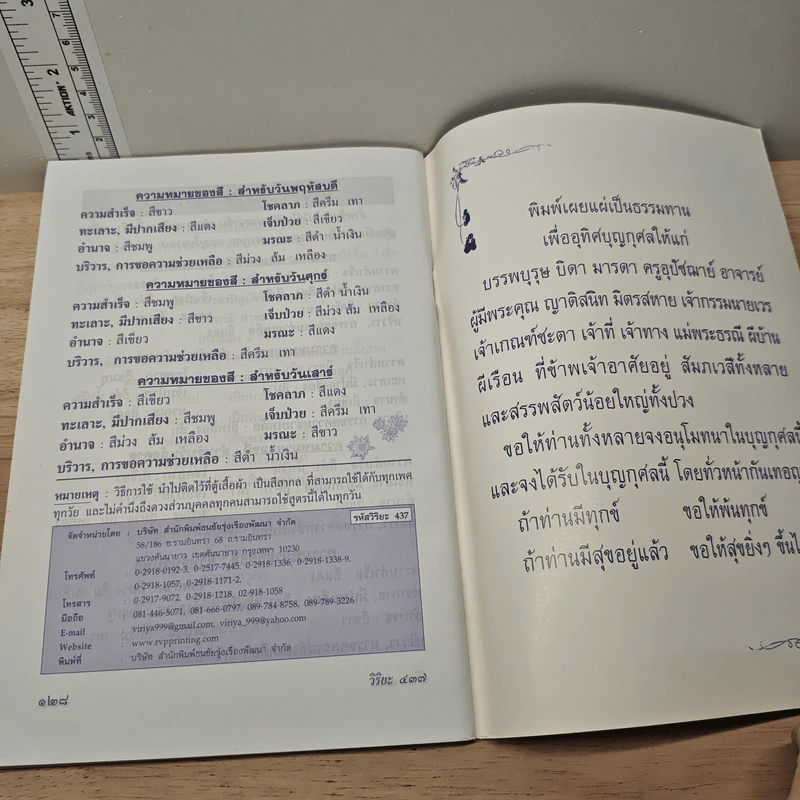 ความหมายของสี : สำหรับวันพฤหัสบดี
ความสำเร็จ : สีขาว โชคลาภ : สีครีม เทา
ทะเลาะ, มีปากเสียง : สีแดง เจ็บป่วย : สีเขียว
อำนาจ : สีชมพู มรณะ : สีดำ น้ำเงิน
บริวาร, การขอความช่วยเหลือ : สีม่วง ส้ม เหลือง
ความหมายของสี : สำหรับวันศุกร์
ความสำเร็จ : สีชมพู โชคลาภ : สีดำ น้ำเงิน
ทะเลาะ, มีปากเสียง : สีขาว เจ็บป่วย : สีม่วง ส้ม เหลือง
อำนาจ : สีเขียว มรณะ : สีแดง
บริวาร, การขอความช่วยเหลือ : สีครีม เทา
ความหมายของสี : สำหรับวันเสาร์
ความสำเร็จ : สีเขียว โชคลาภ : สีแดง
ทะเลาะ, มีปากเสียง : สีชมพู เจ็บป่วย : สีครีม เทา
อำนาจ : สีม่วง ส้ม เหลือง มรณะ : สีขาว
บริวาร, การขอความช่วยเหลือ : สีดำ น้ำเงิน
หมายเหตุ : วิธีการใช้ นำไปติดไว้ที่ตู้เสื้อผ้า เป็นสีสากล ที่สามารถใช้ได้กับทุกเพศ
ทุกวัย และไม่คำนึงถึงดวงส่วนบุคคลทุกคนสามารถใช้สูตรนี้ได้ในทุกวัน
รหัสวิริยะ 437
จัดจำหน่ายโดย : บริษัท สำนักพิมพ์ธนชัยรุ่งเรืองพัฒนา จำกัด
58/186 ซ.รามอินทรา 68 ถ.รามอินทรา
แขวงคันนายาว เขตคันนายาว กรุงเทพฯ 10230
โทรศัพท์ : 0-2918-0192-3, 0-2517-7445, 0-2918-1336, 0-2918-1338-9,
0-2918-1057, 0-2918-1171-2,
โทรสาร : 0-2917-9072, 0-2918-1218, 02-918-1058
มือถือ : 081-446-5071, 081-666-0797, 089-784-8758, 089-789-3226
E-mail : viriya999@gmail.com, viriya_999@yahoo.com
Website : www.rvpprinting.com
พิมพ์ที่ : บริษัท สำนักพิมพ์ธนชัยรุ่งเรืองพัฒนา จำกัด
๑๒๘ วิริยะ ๔๓๗
พิมพ์เผยแผ่เป็นธรรมทาน
เพื่ออุทิศบุญกุศลให้แก่
บรรพบุรุษ บิดา มารดา ครูอุปัชฌาย์ อาจารย์
ผู้มีพระคุณ ญาติสนิท มิตรสหาย เจ้ากรรมนายเวร
เจ้าเกณฑ์ชะตา เจ้าที่ เจ้าทาง แม่พระธรณี ผีบ้าน
ผีเรือน ที่ข้าพเจ้าอาศัยอยู่ สัมภเวสีทั้งหลาย
และสรรพสัตว์น้อยใหญ่ทั้งปวง
ขอให้ท่านทั้งหลายจงอนุโมทนาในบุญกุศลนี้
และจงได้รับในบุญกุศลนี้ โดยทั่วหน้ากันเทอญ
ถ้าท่านมีทุกข์ ขอให้พ้นทุกข์
ถ้าท่านมีสุขอยู่แล้ว ขอให้สุขยิ่งๆ
AKTION